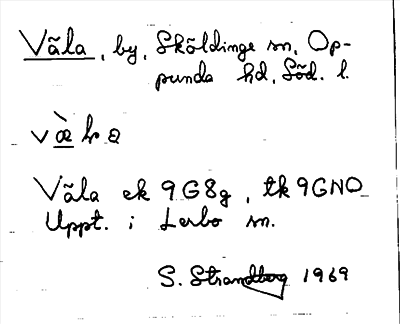 Våla, by, Sköldinge sn, Op-
punda hd, Söd. l.
v æ̀ l a
Våla ek 9G8g, tk 9GNO
Uppt. i Lerbo sn.
S. Strandberg 1969